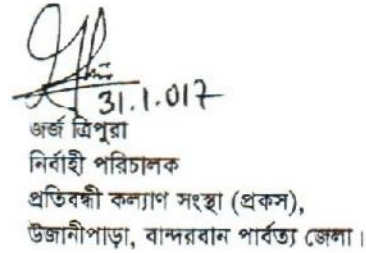 31.1.017
জর্জ ত্রিপুরা
নির্বাহী পরিচালক
প্রতিবন্ধী কল্যাণ সংস্থা (প্রকস),
উজানীপাড়া, বান্দরবান পার্বত্য জেলা।